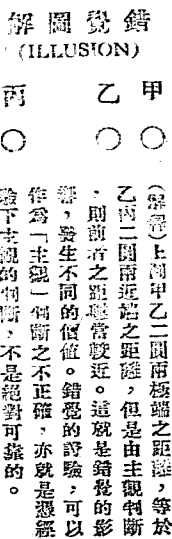 錯覺圖解
(ILLUSION)
甲 乙 丙
(解釋)上圖甲乙二圓兩極端之距離,等於
乙丙二圓兩近端之距離,但是由主觀判斷
,則前者之距離常較近。這就是錯覺的影
響,發生不同的價值。錯覺的試驗,可以
作爲「主觀」判斷之不正確,亦就是憑經
驗下主觀的判斷,不是絕對可靠的。